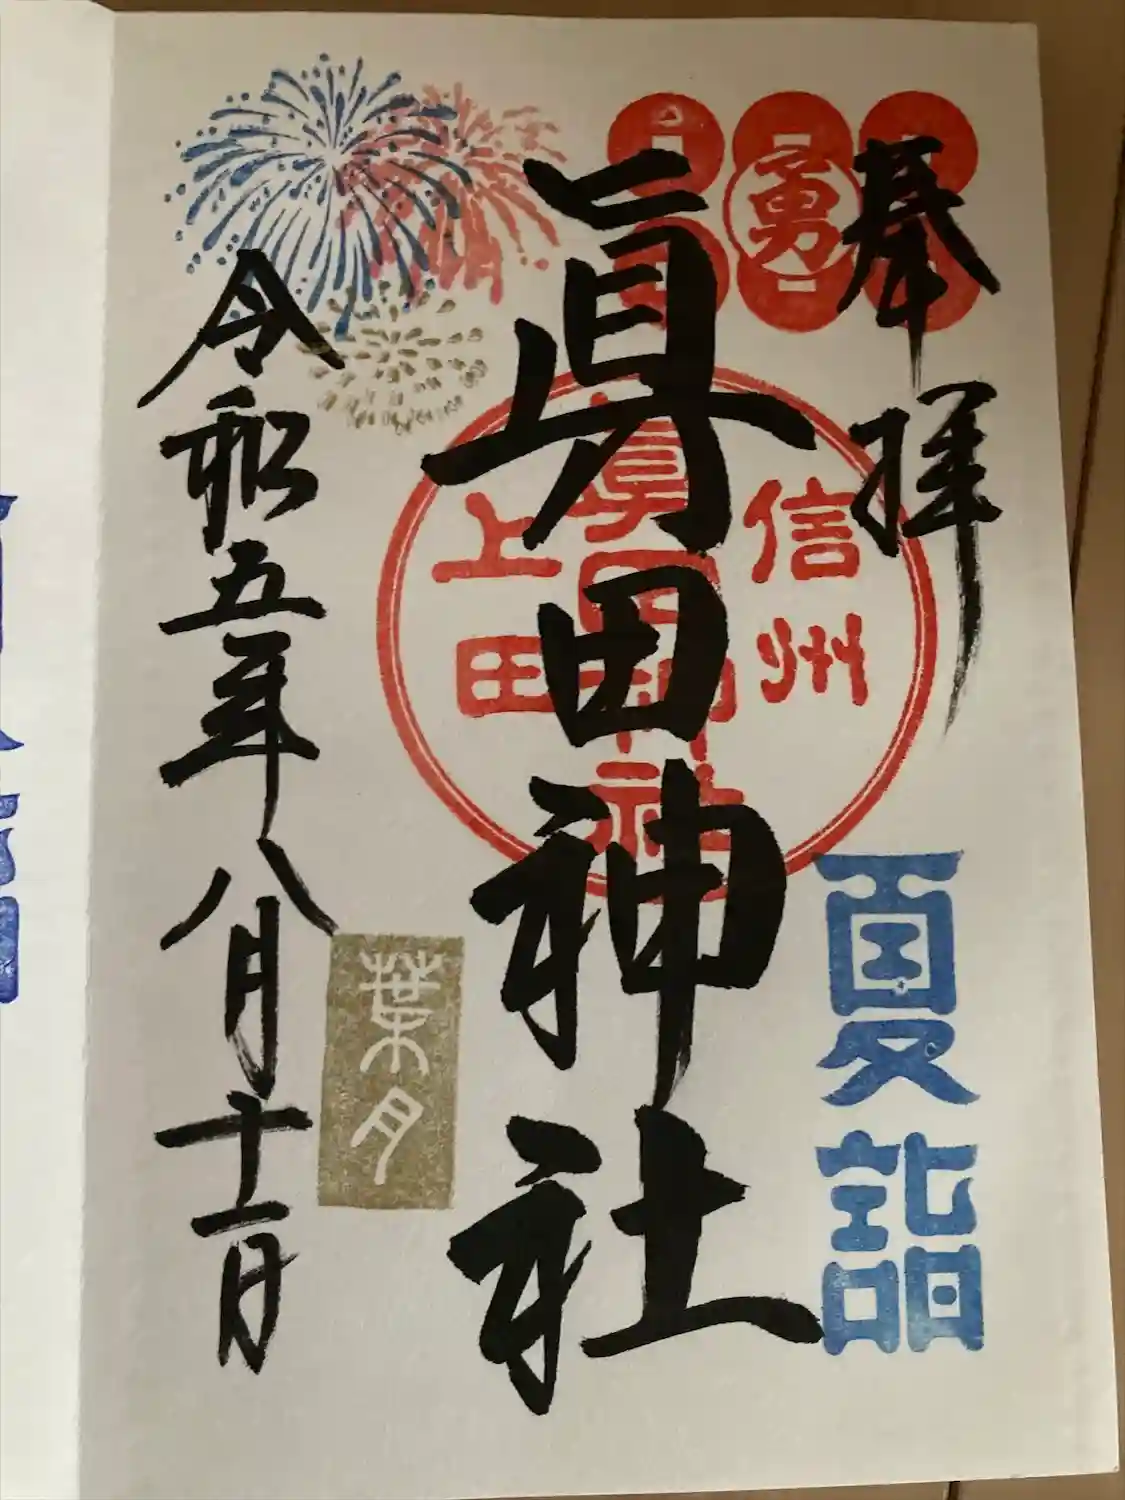 奉拝
勇
夏詣
眞田神社
信州
眞田神社
上田
葉月
令和五年八月十一日